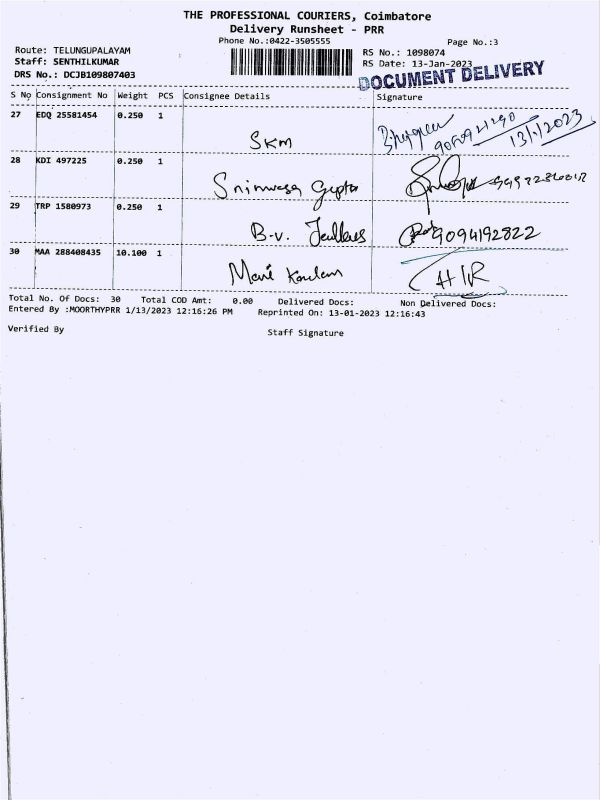 THE PROFESSIONAL COURIERS, Coimbatore
Delivery Runsheet - PRR
Phone No.:0422-3505555
Page No.:3
Route: TELUNGUPALAYAM
RS No.: 1098074
Staff: SENTHILKUMAR
RS Date: 13-Jan-2023
DRS No.: DCJB109807403
DOCUMENT DELIVERY
S No Consignment No Weight PCS Consignee Details Signature
27 EDQ 25581454 0.250 1
SKM 13/1/2023
28 KDI 497225 0.250 1
Srinivasa Gupta
29 TRP 1580973 0.250 1
B.V. 9094192822
30 MAA 288408435 10.100 1
Mani HIR
Total No. Of Docs: 30 Total COD Amt: 0.00 Delivered Docs: Non Delivered Docs:
Entered By :MOORTHYPRR 1/13/2023 12:16:26 PM Reprinted On: 13-01-2023 12:16:43
Verified By Staff Signature